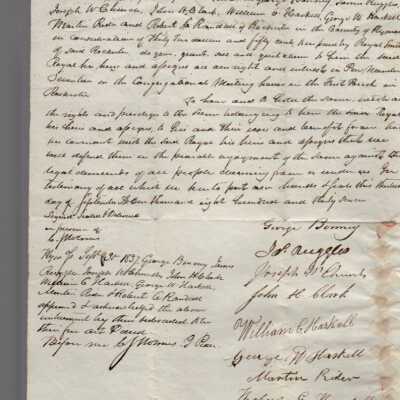 Joseph W Church, John H. Clark, William C Haskell, George W Haskell
Martin Rider and Robert C. Randall of Rochester in the County of Plymouth
in consideration of thirty two dollars and fifty cents paid by Royal
of said Rochester do give, grant, sell and convey to him the said
Royal his heirs and assigns all our right and interest in Pew Number
Seventeen in the Congregational Meeting house in the First Parish in
Rochester
To have and to hold the same, with all
the rights and privileges to the same belonging to him the said Royal
his heirs and assigns, to his and their use and benefit forever. And
we covenant with the said Royal his heirs and assigns that we
will defend them in the peaceable enjoyment of the same against the
legal demands of all people claiming from or under us. In
testimony of all which we hereto put our hands & seals this
day of September AD one thousand eight hundred and thirty seven
Signed sealed & delivered
in presence of
George Bonney
Js Ruggles
Joseph W Church
John H Clark
William C Haskell
George W Haskell
Martin Rider
Plym SS Sept 1837 George Bonney James
Ruggles Joseph W Church, John H. Clark
William C Haskell, George W Haskell,
Martin Rider & Robert C Randall
appeared & acknowledged the above
instrument by them subscribed to be
their free act & deed
Before me